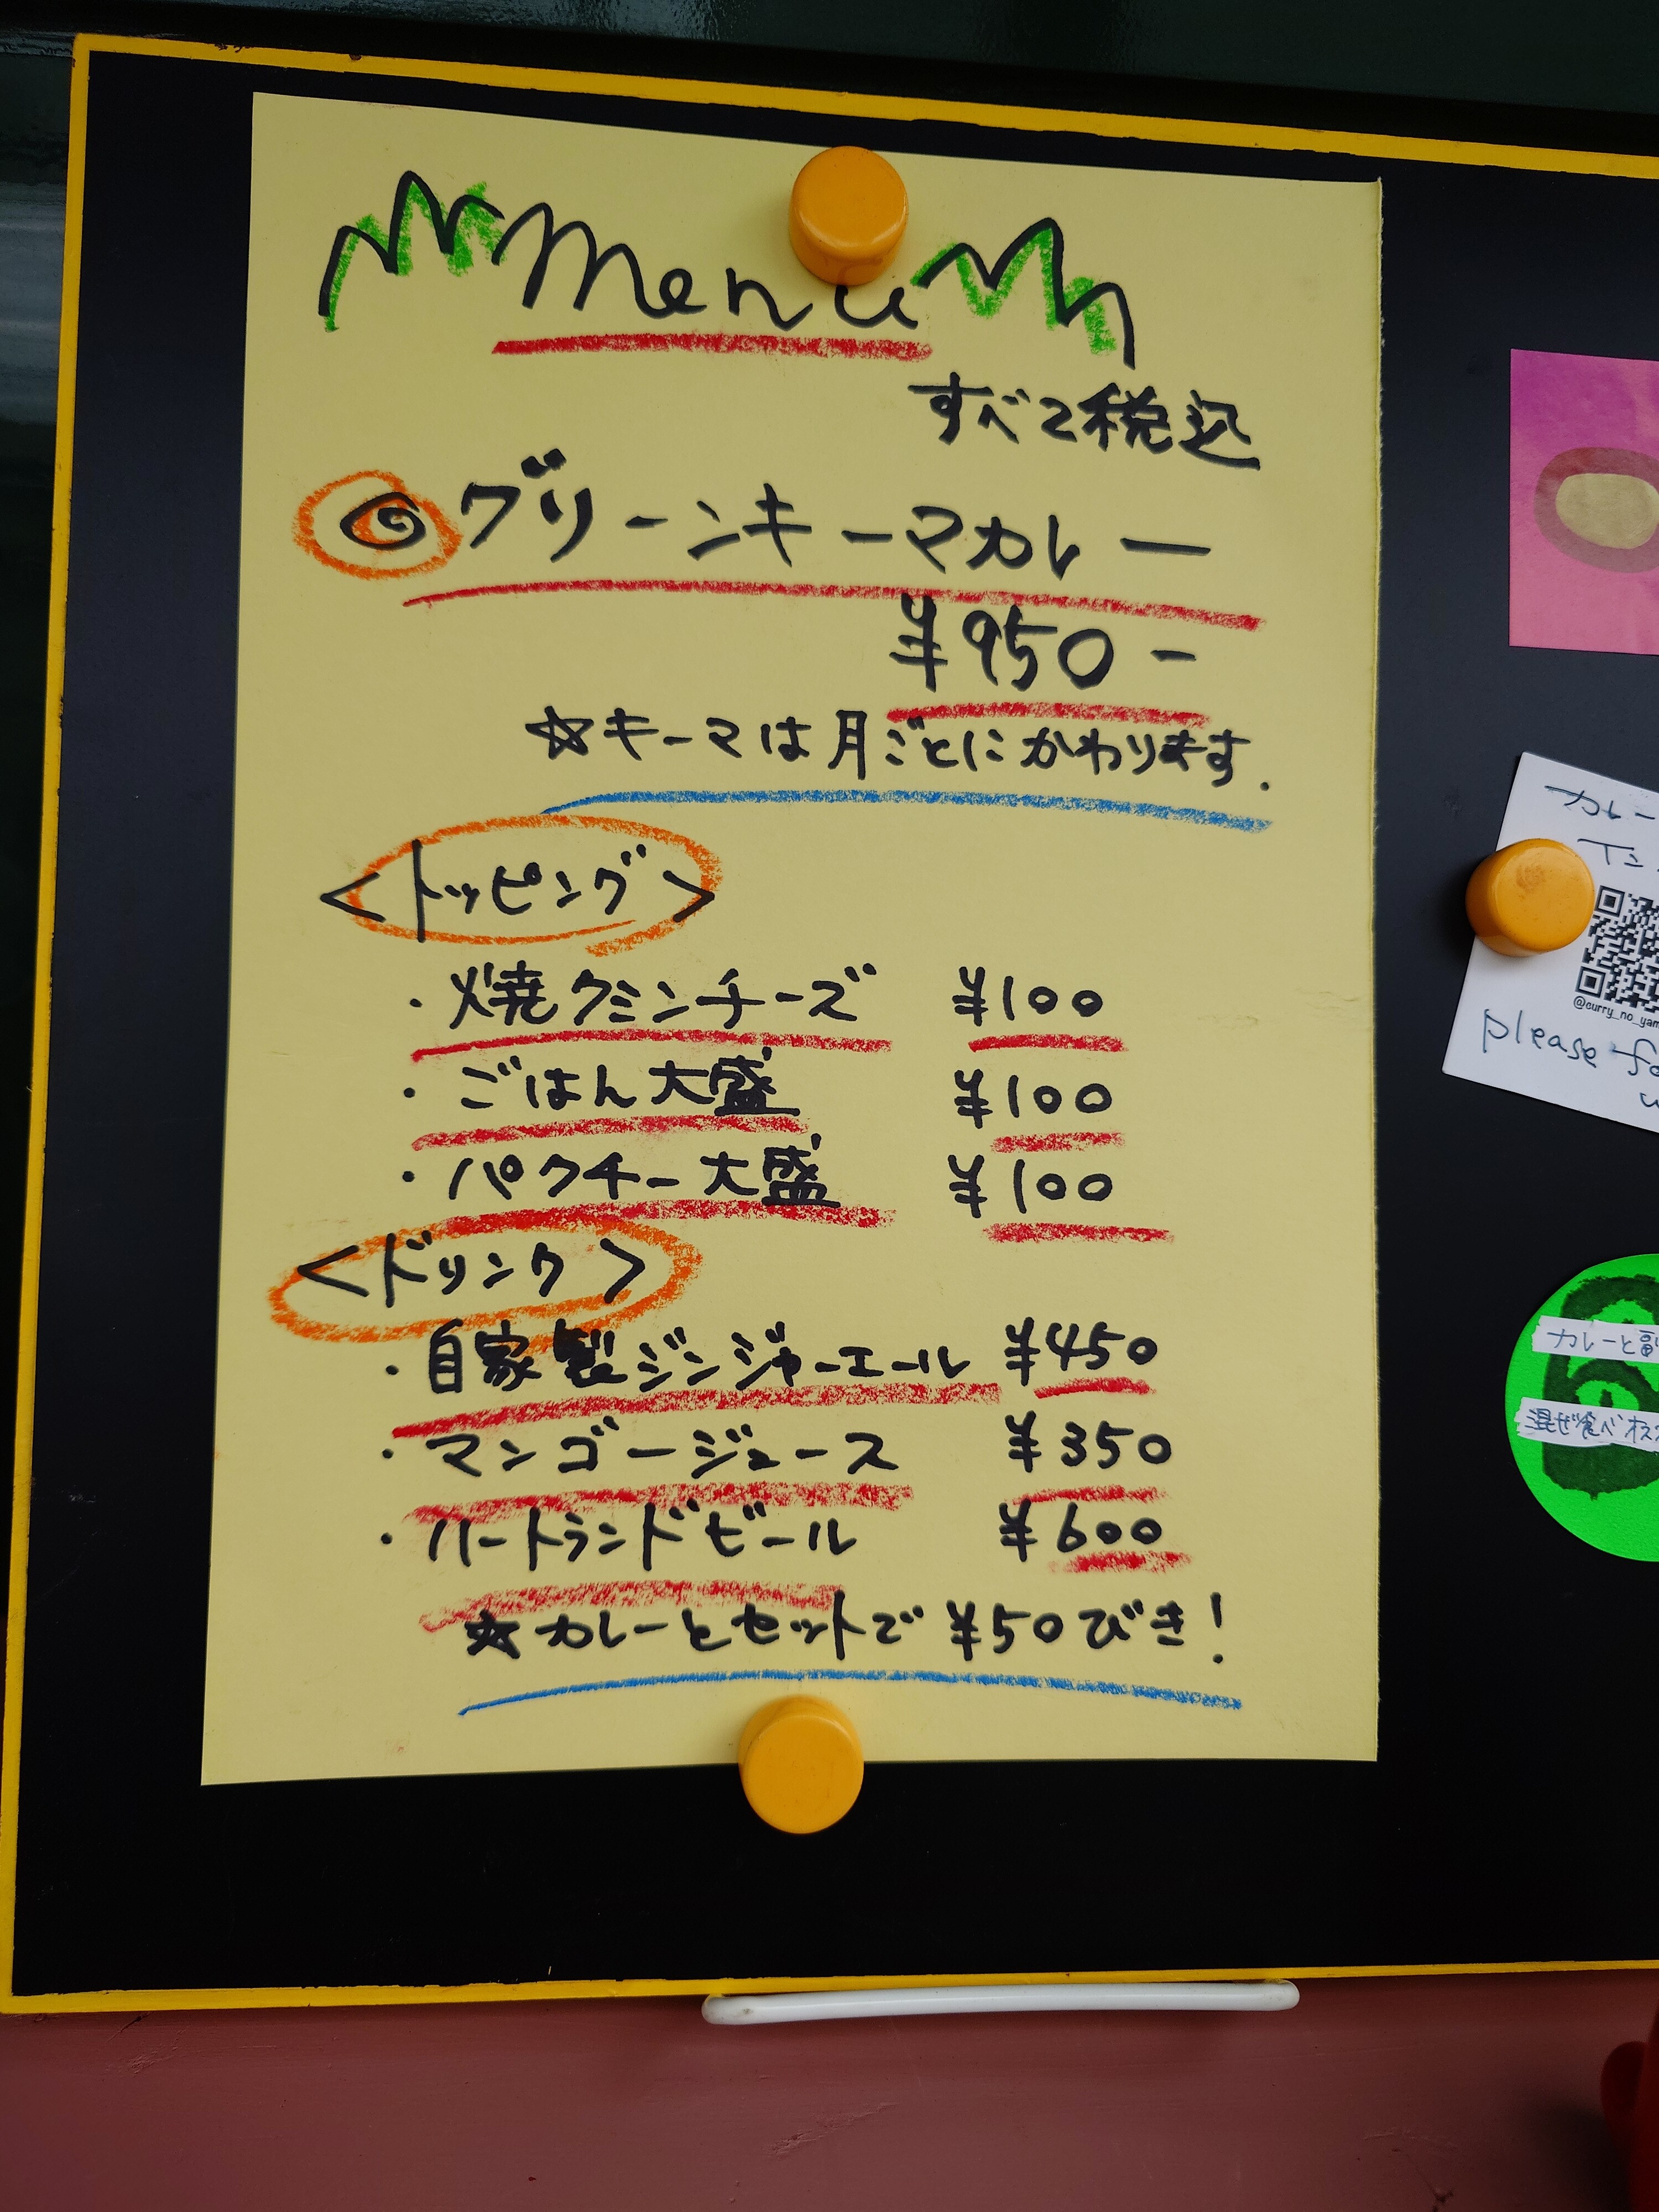 Menu
すべて税込
◎グリーンキーマカレー
¥950-
☆キーマは月ごとにかわります.
<トッピング>
・焼クミンチーズ ¥100
・ごはん大盛 ¥100
・パクチー大盛 ¥100
<ドリンク>
・自家製ジンジャーエール ¥450
・マンゴージュース ¥350
・ハートランドビール ¥600
☆カレーとセットで ¥50びき!
カレー
@curry_no_yam
please fo
カレーと副
混ぜ食べオスス